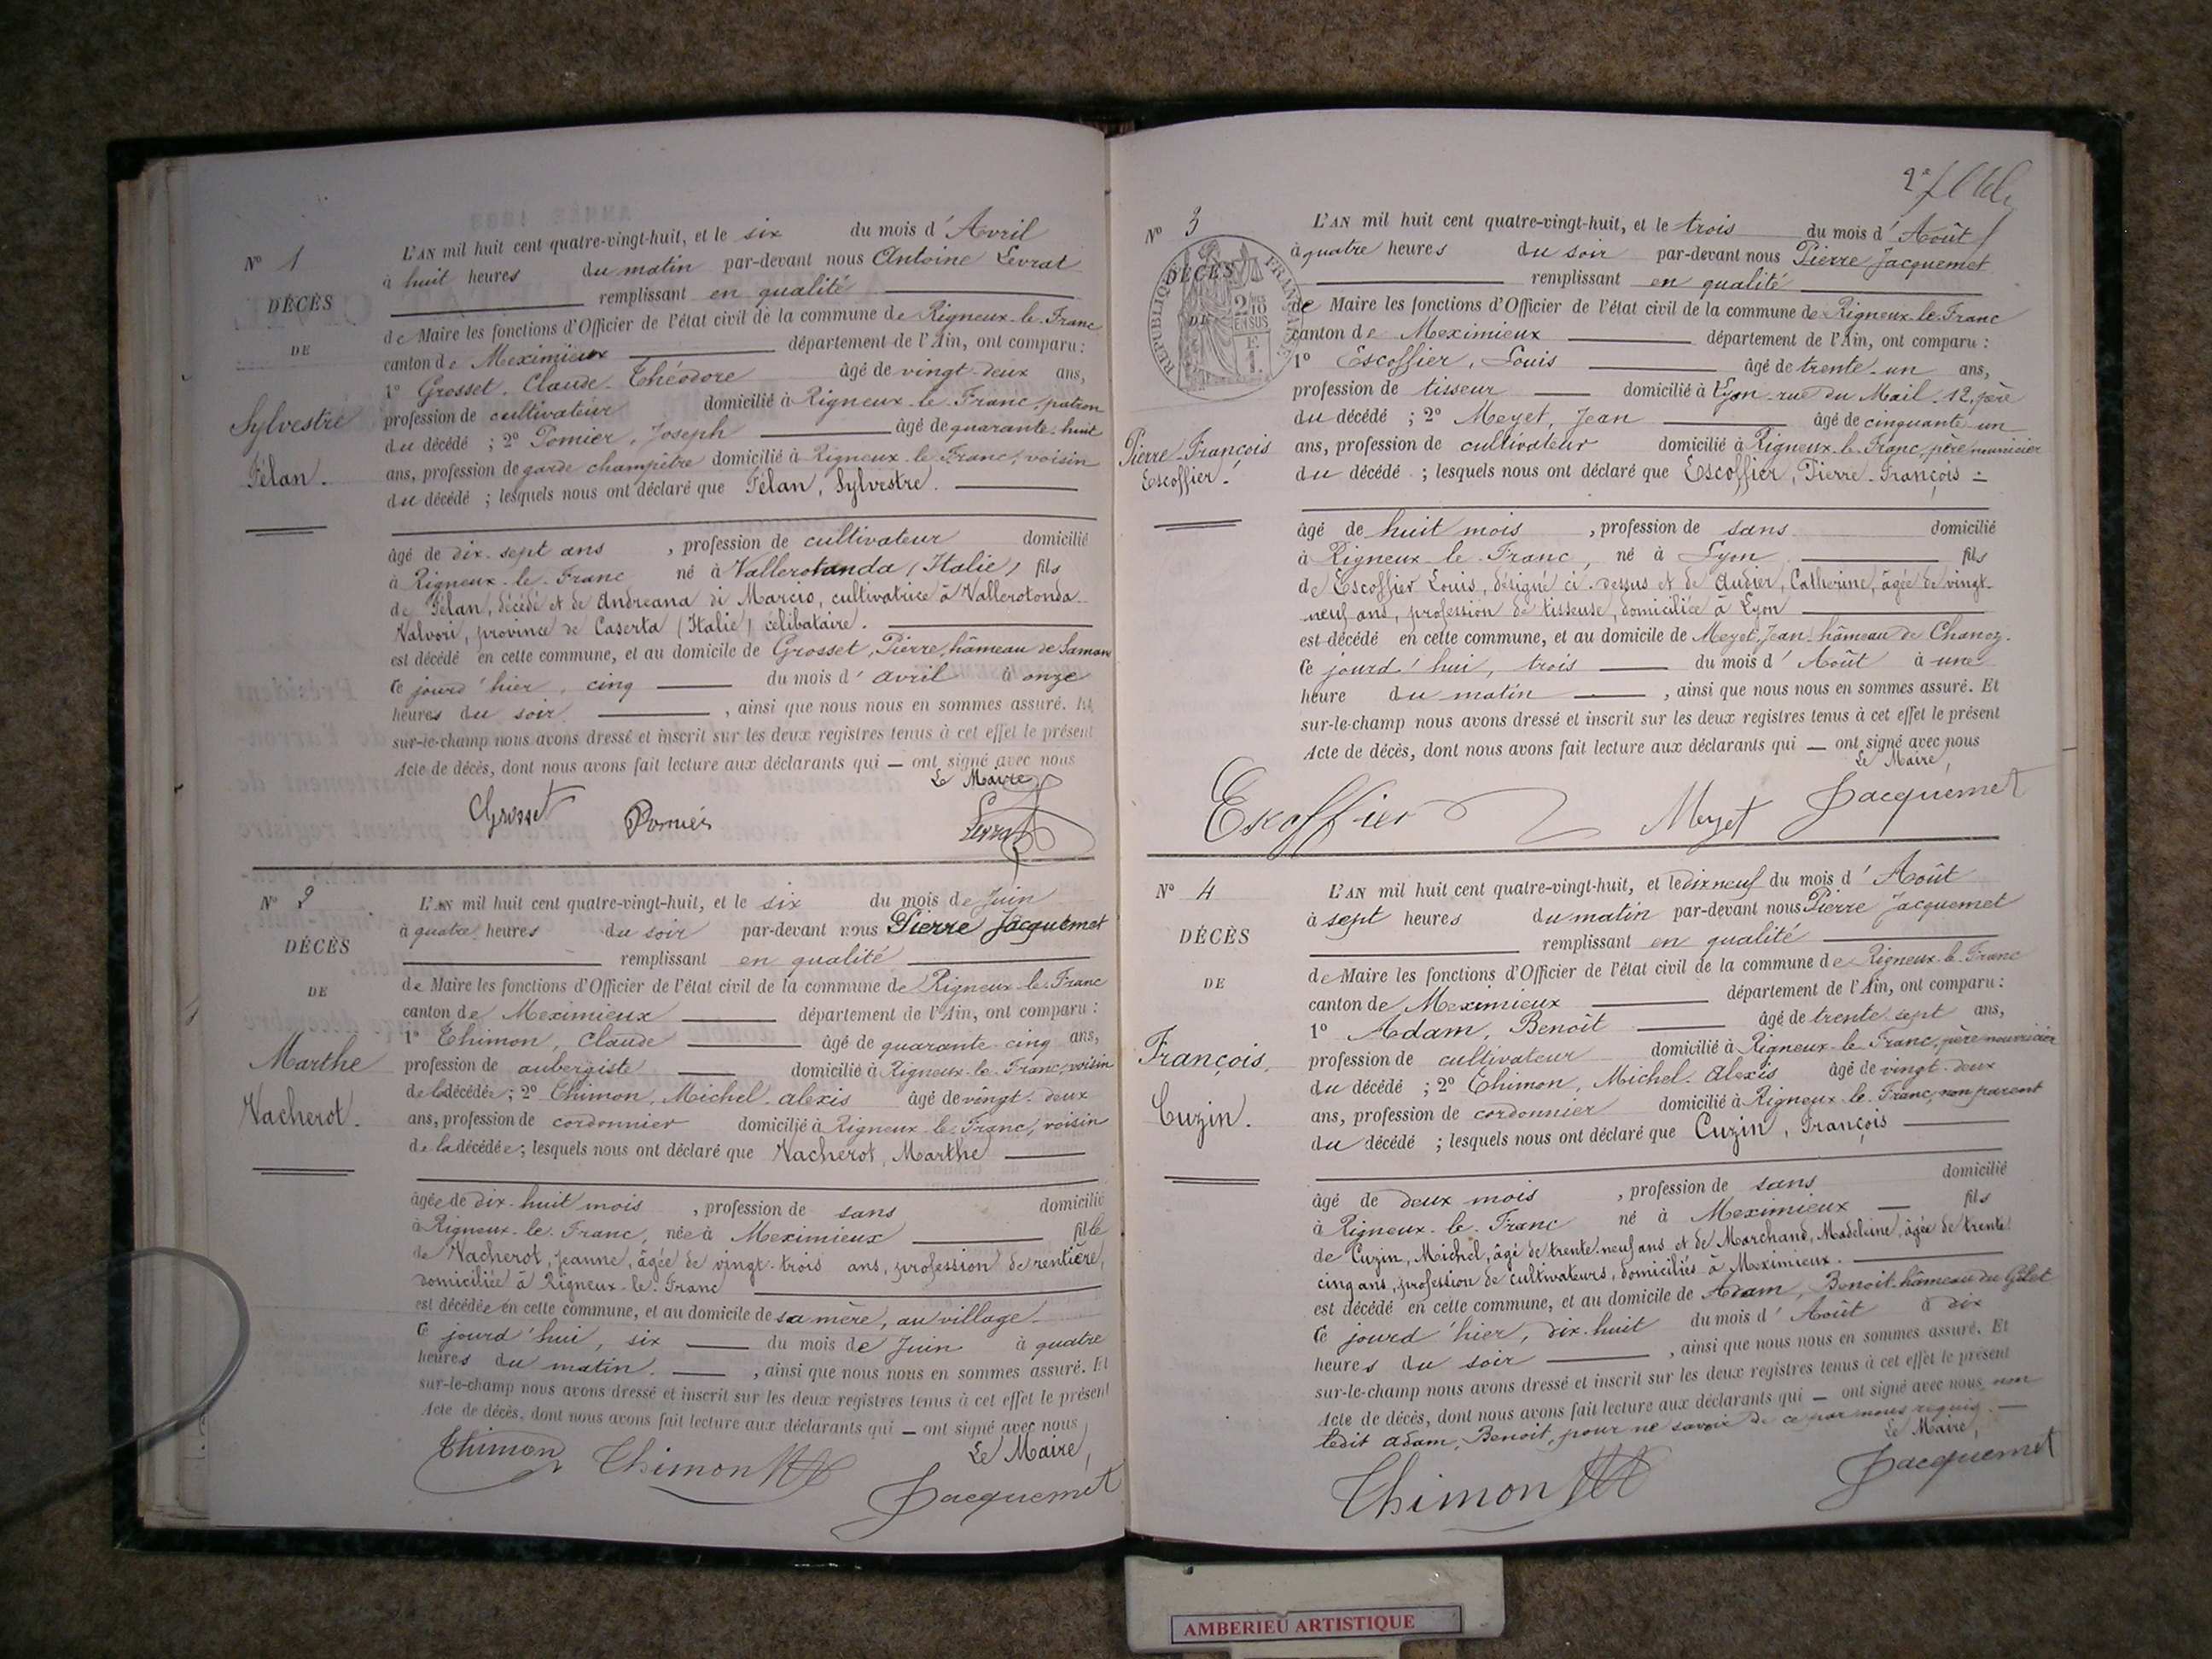 Nº 1
DÉCÈS
DE
Sylvestre
Félan.
L'AN mil huit cent quatre-vingt-huit, et le six du mois d'Avril
à huit heures du matin par-devant nous Antoine Levrat
remplissant en qualité
de Maire les fonctions d'Officier de l'état civil de la commune de Rigneux-le-Franc
canton de Meximieux département de l'Ain, ont comparu :
1º Grosset, Claude-Théodore âgé de vingt-deux ans,
profession de cultivateur domicilié à Rigneux-le-Franc, patron
du décédé ; 2º Pomier, Joseph âgé de quarante-huit
ans, profession de garde champêtre domicilié à Rigneux-le-Franc, voisin
du décédé ; lesquels nous ont déclaré que Félan, Sylvestre.
âgé de dix-sept ans, profession de cultivateur domicilié
à Rigneux-le-Franc né à Vallerotanda (Italie) fils
de Félan, décédé et de Andreana di Marcio, cultivatrice à Vallerotonda
Valvori, province de Caserta (Italie) célibataire.
est décédé en cette commune, et au domicile de Grosset, Pierre, hâmeau de Saman
Ce jourd'hier, cinq du mois d'avril à onze
heures du soir, ainsi que nous nous en sommes assuré. Et
sur-le-champ nous avons dressé et inscrit sur les deux registres tenus à cet effet le présent
Acte de décès, dont nous avons fait lecture aux déclarants qui — ont signé avec nous
Le Maire
Grosset Pomier Levrat
Nº 2
DÉCÈS
DE
Marthe
Vacherot.
L'AN mil huit cent quatre-vingt-huit, et le six du mois de Juin
à quatre heures du soir par-devant nous Pierre Jacquemet
remplissant en qualité
de Maire les fonctions d'Officier de l'état civil de la commune de Rigneux-le-Franc
canton de Meximieux département de l'Ain, ont comparu :
1º Thimon, Claude âgé de quarante-cinq ans,
profession de aubergiste domicilié à Rigneux-le-Franc, voisin
de la décédée ; 2º Thimon, Michel-alexis âgé de vingt-deux
ans, profession de cordonnier domicilié à Rigneux-le-Franc, voisin
de la décédée ; lesquels nous ont déclaré que Vacherot, Marthe
âgée de dix-huit mois, profession de sans domicilié
à Rigneux-le-Franc, née à Meximieux fille
de Vacherot, Jeanne, âgée de vingt-trois ans, profession de rentière,
domiciliée à Rigneux-le-Franc
est décédée en cette commune, et au domicile de sa mère, au village.
Ce jourd'hui, six du mois de Juin à quatre
heures du matin., ainsi que nous nous en sommes assuré. Et
sur-le-champ nous avons dressé et inscrit sur les deux registres tenus à cet effet le présent
Acte de décès, dont nous avons fait lecture aux déclarants qui — ont signé avec nous
Le Maire,
Thimon Thimon Jacquemet
2e
Nº 3
DÉCÈS
DE
RÉPUBLIQUE FRANÇAISE
Pierre-François
Escoffier.
L'AN mil huit cent quatre-vingt-huit, et le trois du mois d'Août
à quatre heures du soir par-devant nous Pierre Jacquemet
remplissant en qualité
de Maire les fonctions d'Officier de l'état civil de la commune de Rigneux-le-Franc
canton de Meximieux département de l'Ain, ont comparu :
1º Escoffier, Louis âgé de trente-un ans,
profession de tisseur domicilié à Lyon rue du Mail. 12, père
du décédé ; 2º Meyet, Jean âgé de cinquante-un
ans, profession de cultivateur domicilié à Rigneux-le-Franc, père nourricier
du décédé ; lesquels nous ont déclaré que Escoffier, Pierre-François
âgé de huit mois, profession de sans domicilié
à Rigneux le Franc, né à Lyon fils
de Escoffier Louis, désigné ci-dessus et de Audier, Catherine, âgée de vingt-
neuf ans, profession de tisseuse, domiciliée à Lyon
est décédé en cette commune, et au domicile de Meyet, Jean, hâmeau de Chanoz.
Ce jourd'hui, trois du mois d'Août à une
heure du matin, ainsi que nous nous en sommes assuré. Et
sur-le-champ nous avons dressé et inscrit sur les deux registres tenus à cet effet le présent
Acte de décès, dont nous avons fait lecture aux déclarants qui — ont signé avec nous
Le Maire,
Escoffier Meyet Jacquemet
Nº 4
DÉCÈS
DE
François,
Cuzin.
L'AN mil huit cent quatre-vingt-huit, et le dix neuf du mois d'Août
à sept heures du matin par-devant nous Pierre Jacquemet
remplissant en qualité
de Maire les fonctions d'Officier de l'état civil de la commune de Rigneux-le-Franc
canton de Meximieux département de l'Ain, ont comparu :
1º Adam, Benoît âgé de trente sept ans,
profession de cultivateur domicilié à Rigneux-le-Franc, père nourricier
du décédé ; 2º Thimon, Michel-Alexis âgé de vingt-deux
ans, profession de cordonnier domicilié à Rigneux-le-Franc, non parent
du décédé ; lesquels nous ont déclaré que Cuzin, François
âgé de deux mois, profession de sans domicilié
à Rigneux-le-Franc né à Meximieux fils
de Cuzin, Michel, âgé de trente neuf ans et de Marchand, Madeleine, âgée de trente
cinq ans, profession de cultivateurs, domiciliés à Meximieux.
est décédé en cette commune, et au domicile de Adam, Benoît hâmeau du Gilet
Ce jourd'hier, dix-huit du mois d'Août à dix
heures du soir, ainsi que nous nous en sommes assuré. Et
sur-le-champ nous avons dressé et inscrit sur les deux registres tenus à cet effet le présent
Acte de décès, dont nous avons fait lecture aux déclarants qui — ont signé avec nous, non
ledit Adam, Benoît, pour ne savoir de ce par nous requis.
Le Maire,
Thimon Jacquemet
AMBERIEU ARTISTIQUE